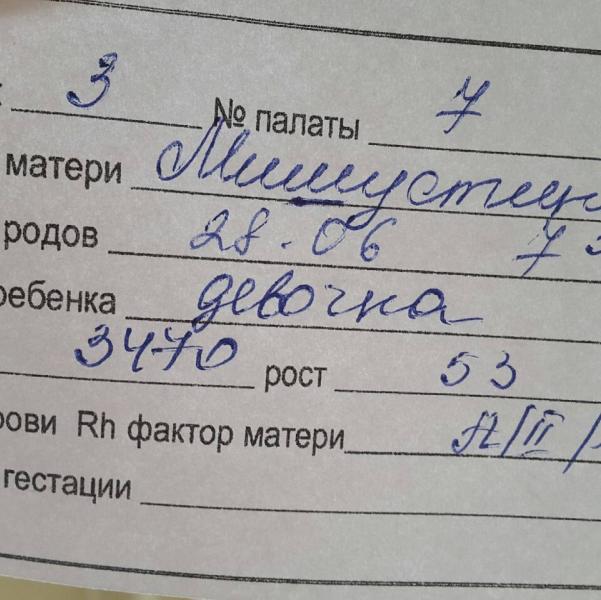 3 № палаты 7
матери Мишустин
родов 28.06 7
ребенка девочка
3470 рост 53
рови Rh фактор матери A/II/
гестации